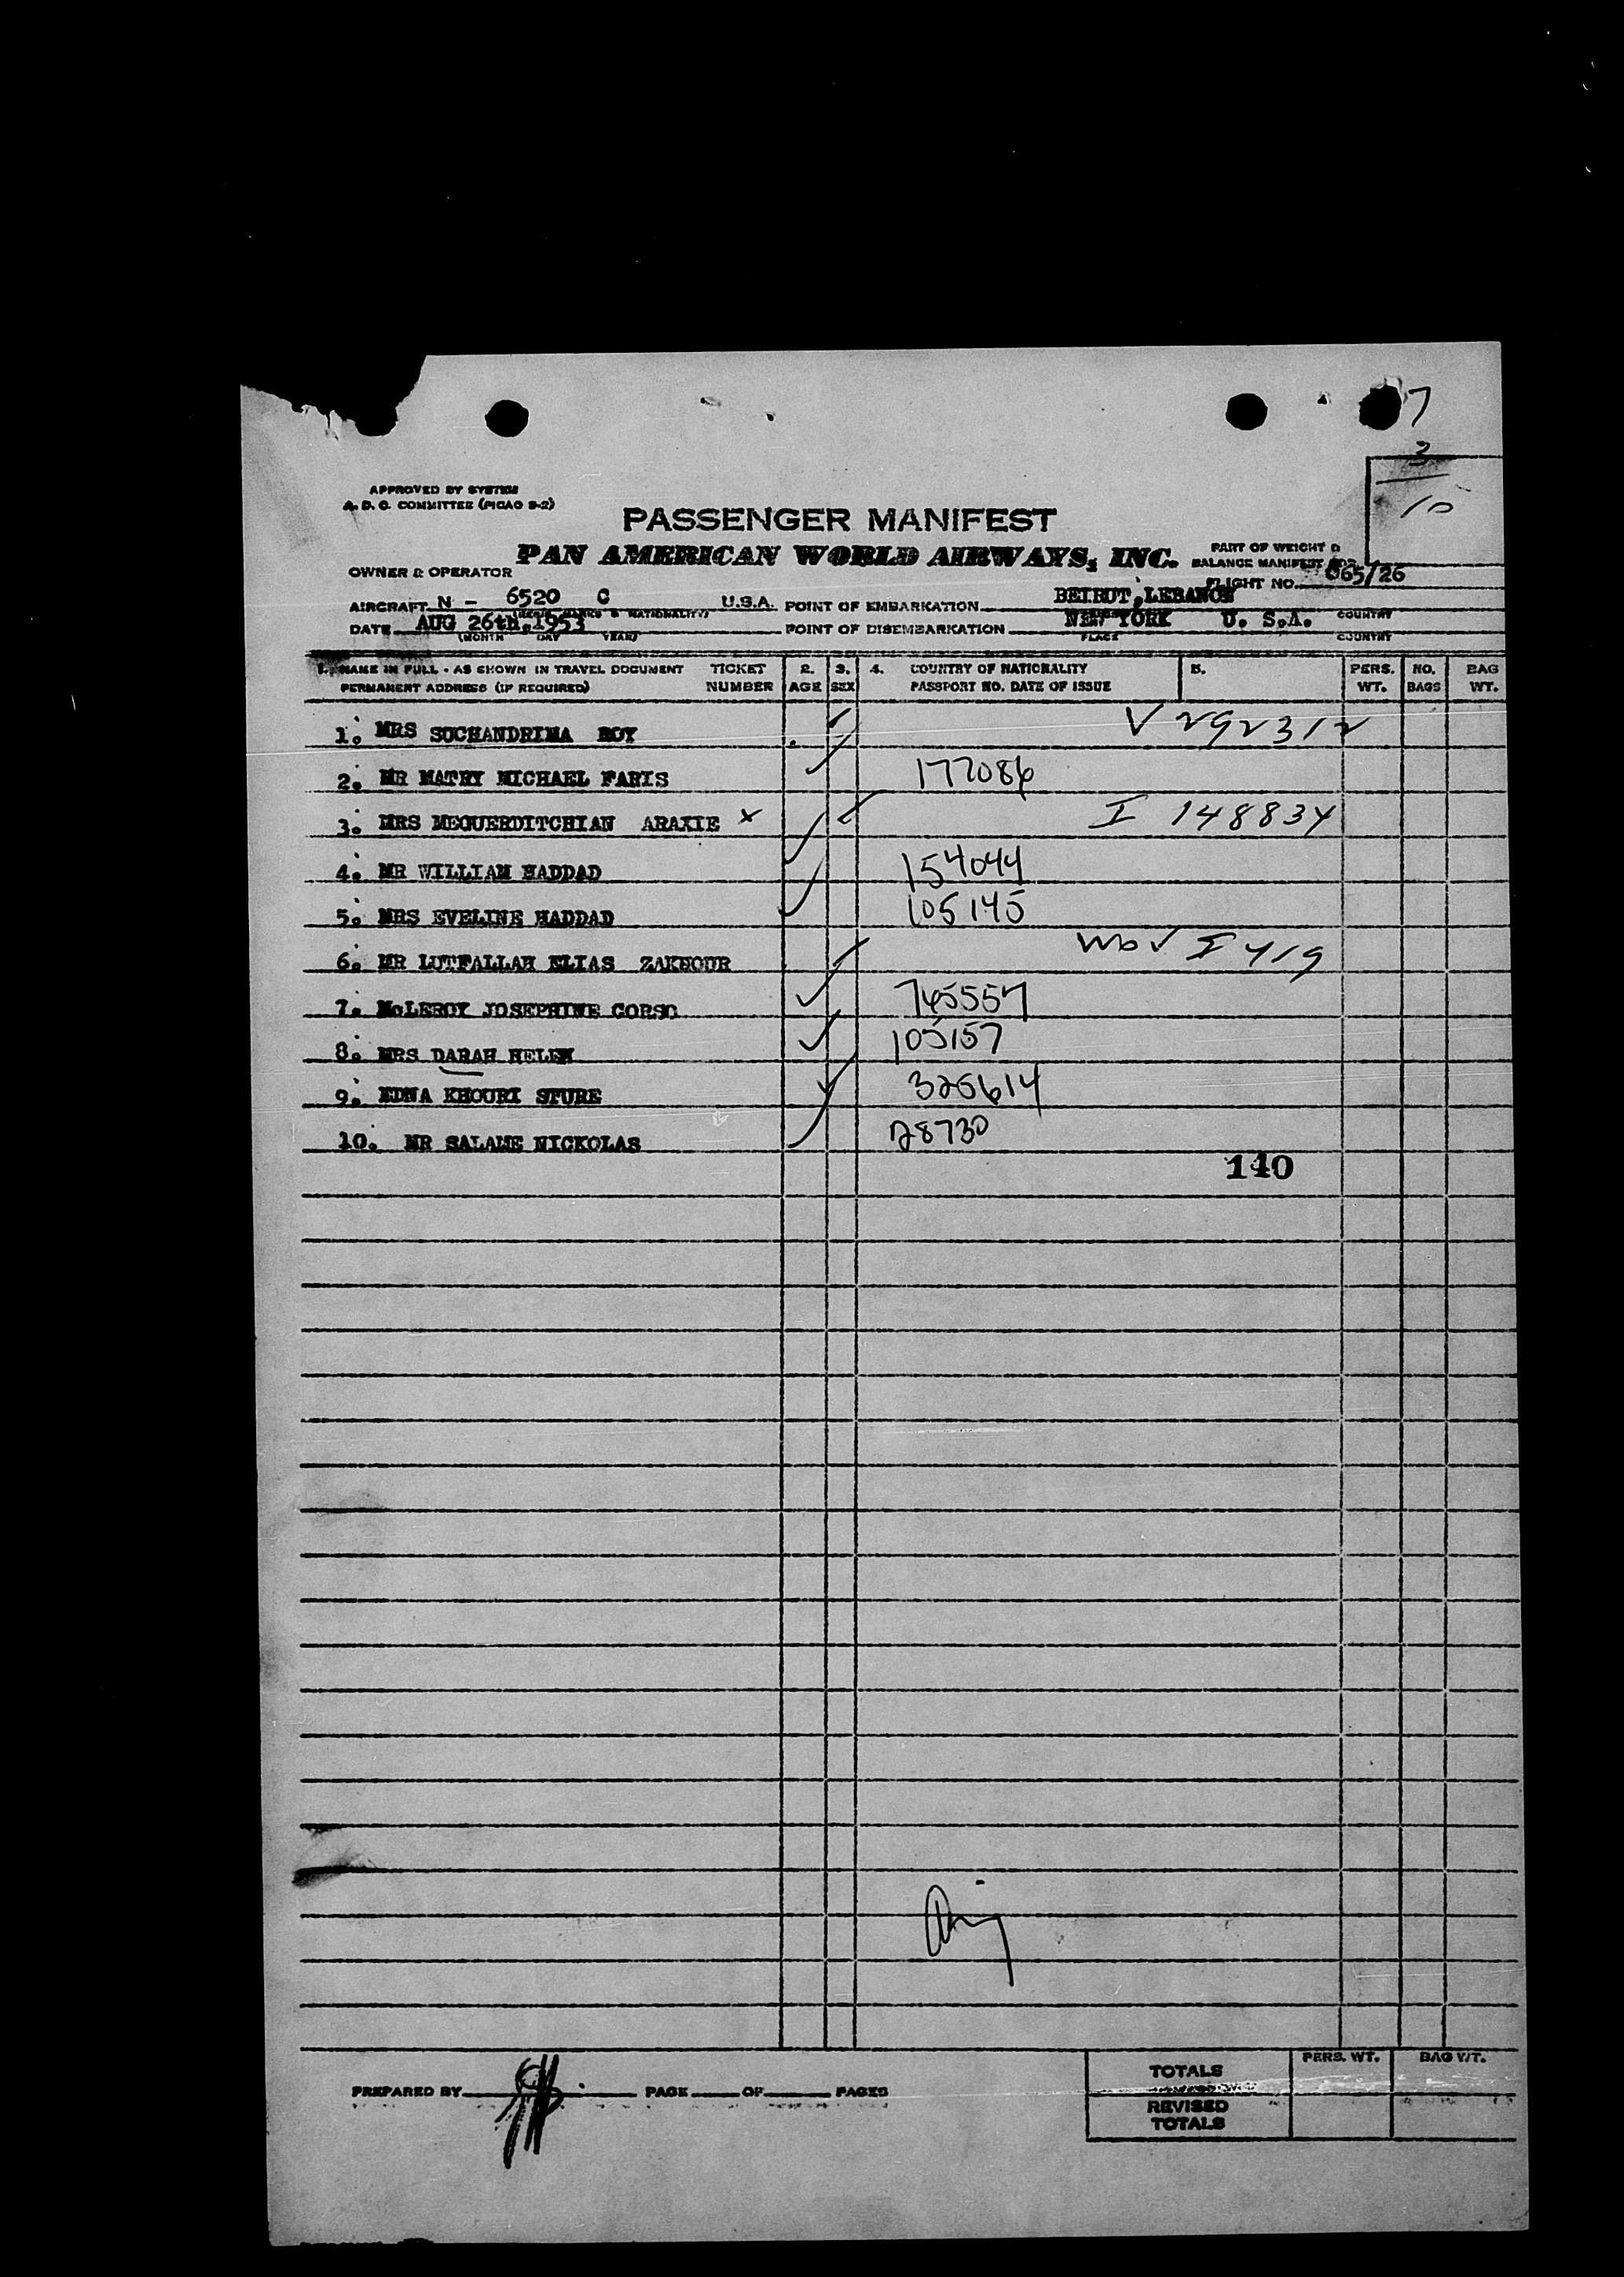 7
3
10
APPROVED BY SYSTEM
A. D. C. COMMITTEE (PICAO S-2)
PASSENGER MANIFEST
PAN AMERICAN WORLD AIRWAYS, INC.
PART OF WEIGHT &
BALANCE MANIFEST FOR
OWNER & OPERATOR
FLIGHT NO. 065/26
AIRCRAFT N - 6520 C U.S.A. POINT OF EMBARKATION BEIRUT, LEBANON COUNTRY
MARKS & NATIONALITY)
DATE AUG 26th, 1953 POINT OF DISEMBARKATION NEW YORK U. S.A.
(MONTH DAY YEAR) PLACE COUNTRY
1. NAME IN FULL - AS SHOWN IN TRAVEL DOCUMENT TICKET 2. 3. 4. COUNTRY OF NATIONALITY 5. PERS. NO. BAG
PERMANENT ADDRESS (IF REQUIRED) NUMBER AGE SEX PASSPORT NO. DATE OF ISSUE WT. BAGS WT.
1. MRS SUCHANDRIMA ROY V 292312
2. MR MATRY MICHAEL FARIS 177086
3. MRS MEGUERDITCHIAN ARAXIE x I 148834
4. MR WILLIAM HADDAD 154044
5. MRS EVELINE HADDAD 105145
6. MR LUTFALLAH ELIAS ZAKHOUR I 419
7. McLEROY JOSEPHINE CORSO 745557
8. MRS DARAH HELEN 105157
9. EDNA KHOURI STURE 325614
10. MR SALAME NICKOLAS 28730
140
PREPARED BY PAGE OF PAGES
TOTALS PERS. WT. BAG WT.
REVISED
TOTALS